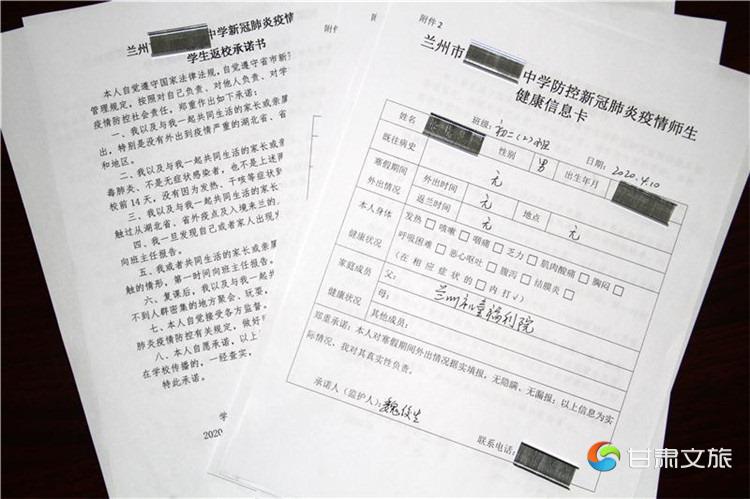 兰州 中学新冠肺炎疫情
学生返校承诺书
本人自觉遵守国家法律法规,自觉遵守省市新
管理规定,按照对自己负责、对他人负责、对学
疫情防控社会责任,郑重作出如下承诺:
一、我以及与我一起共同生活的家长或亲属
出,特别是没有外出到疫情严重的湖北省、省
和地区。
二、我以及与我一起共同生活的家长
毒肺炎、不是无症状感染者,也不是上述两
校前 14 天,没有因为发热、干咳等症状到
三、我以及与我一起共同生活的家
触过从湖北省、省外疫点及入境来兰的
四、我一旦发现自己或者家人出现发
向班主任报告。
五、我或者共同生活的家长或亲属
触的情形,第一时间向班主任报告。
六、复课后,我以及与我一起共
不到人群密集的地方聚会、玩耍、
七、本人自觉接受各方监督。
肺炎疫情防控有关规定,做好
八、本人自愿承诺,以上
在学校传播的,一经查实,
特此承诺。
学
2020
附件
附件 2
兰州市 中学防控新冠肺炎疫情师生
健康信息卡
班级: 初二(2)班 日期: 2020.4.10
姓名 性别 男 出生年月
既往病史 无
寒假期间
外出情况
外出时间 无 地点 无
返兰时间 无
本人身体
健康状况
发热□ 咳嗽□ 咽痛□ 乏力□ 肌肉酸痛□ 胸闷□
呼吸困难□ 恶心呕吐□ 腹泻□ 结膜炎□
(在相应症状的□内打√)
家庭成员
健康状况
父:
母: 兰州儿童福利院
其他成员:
郑重承诺:本人对寒假期间外出情况据实填报,无隐瞒、无漏报;以上信息为实
际情况,我对其真实性负责。
承诺人(监护人):
联系电话:
甘肃文旅